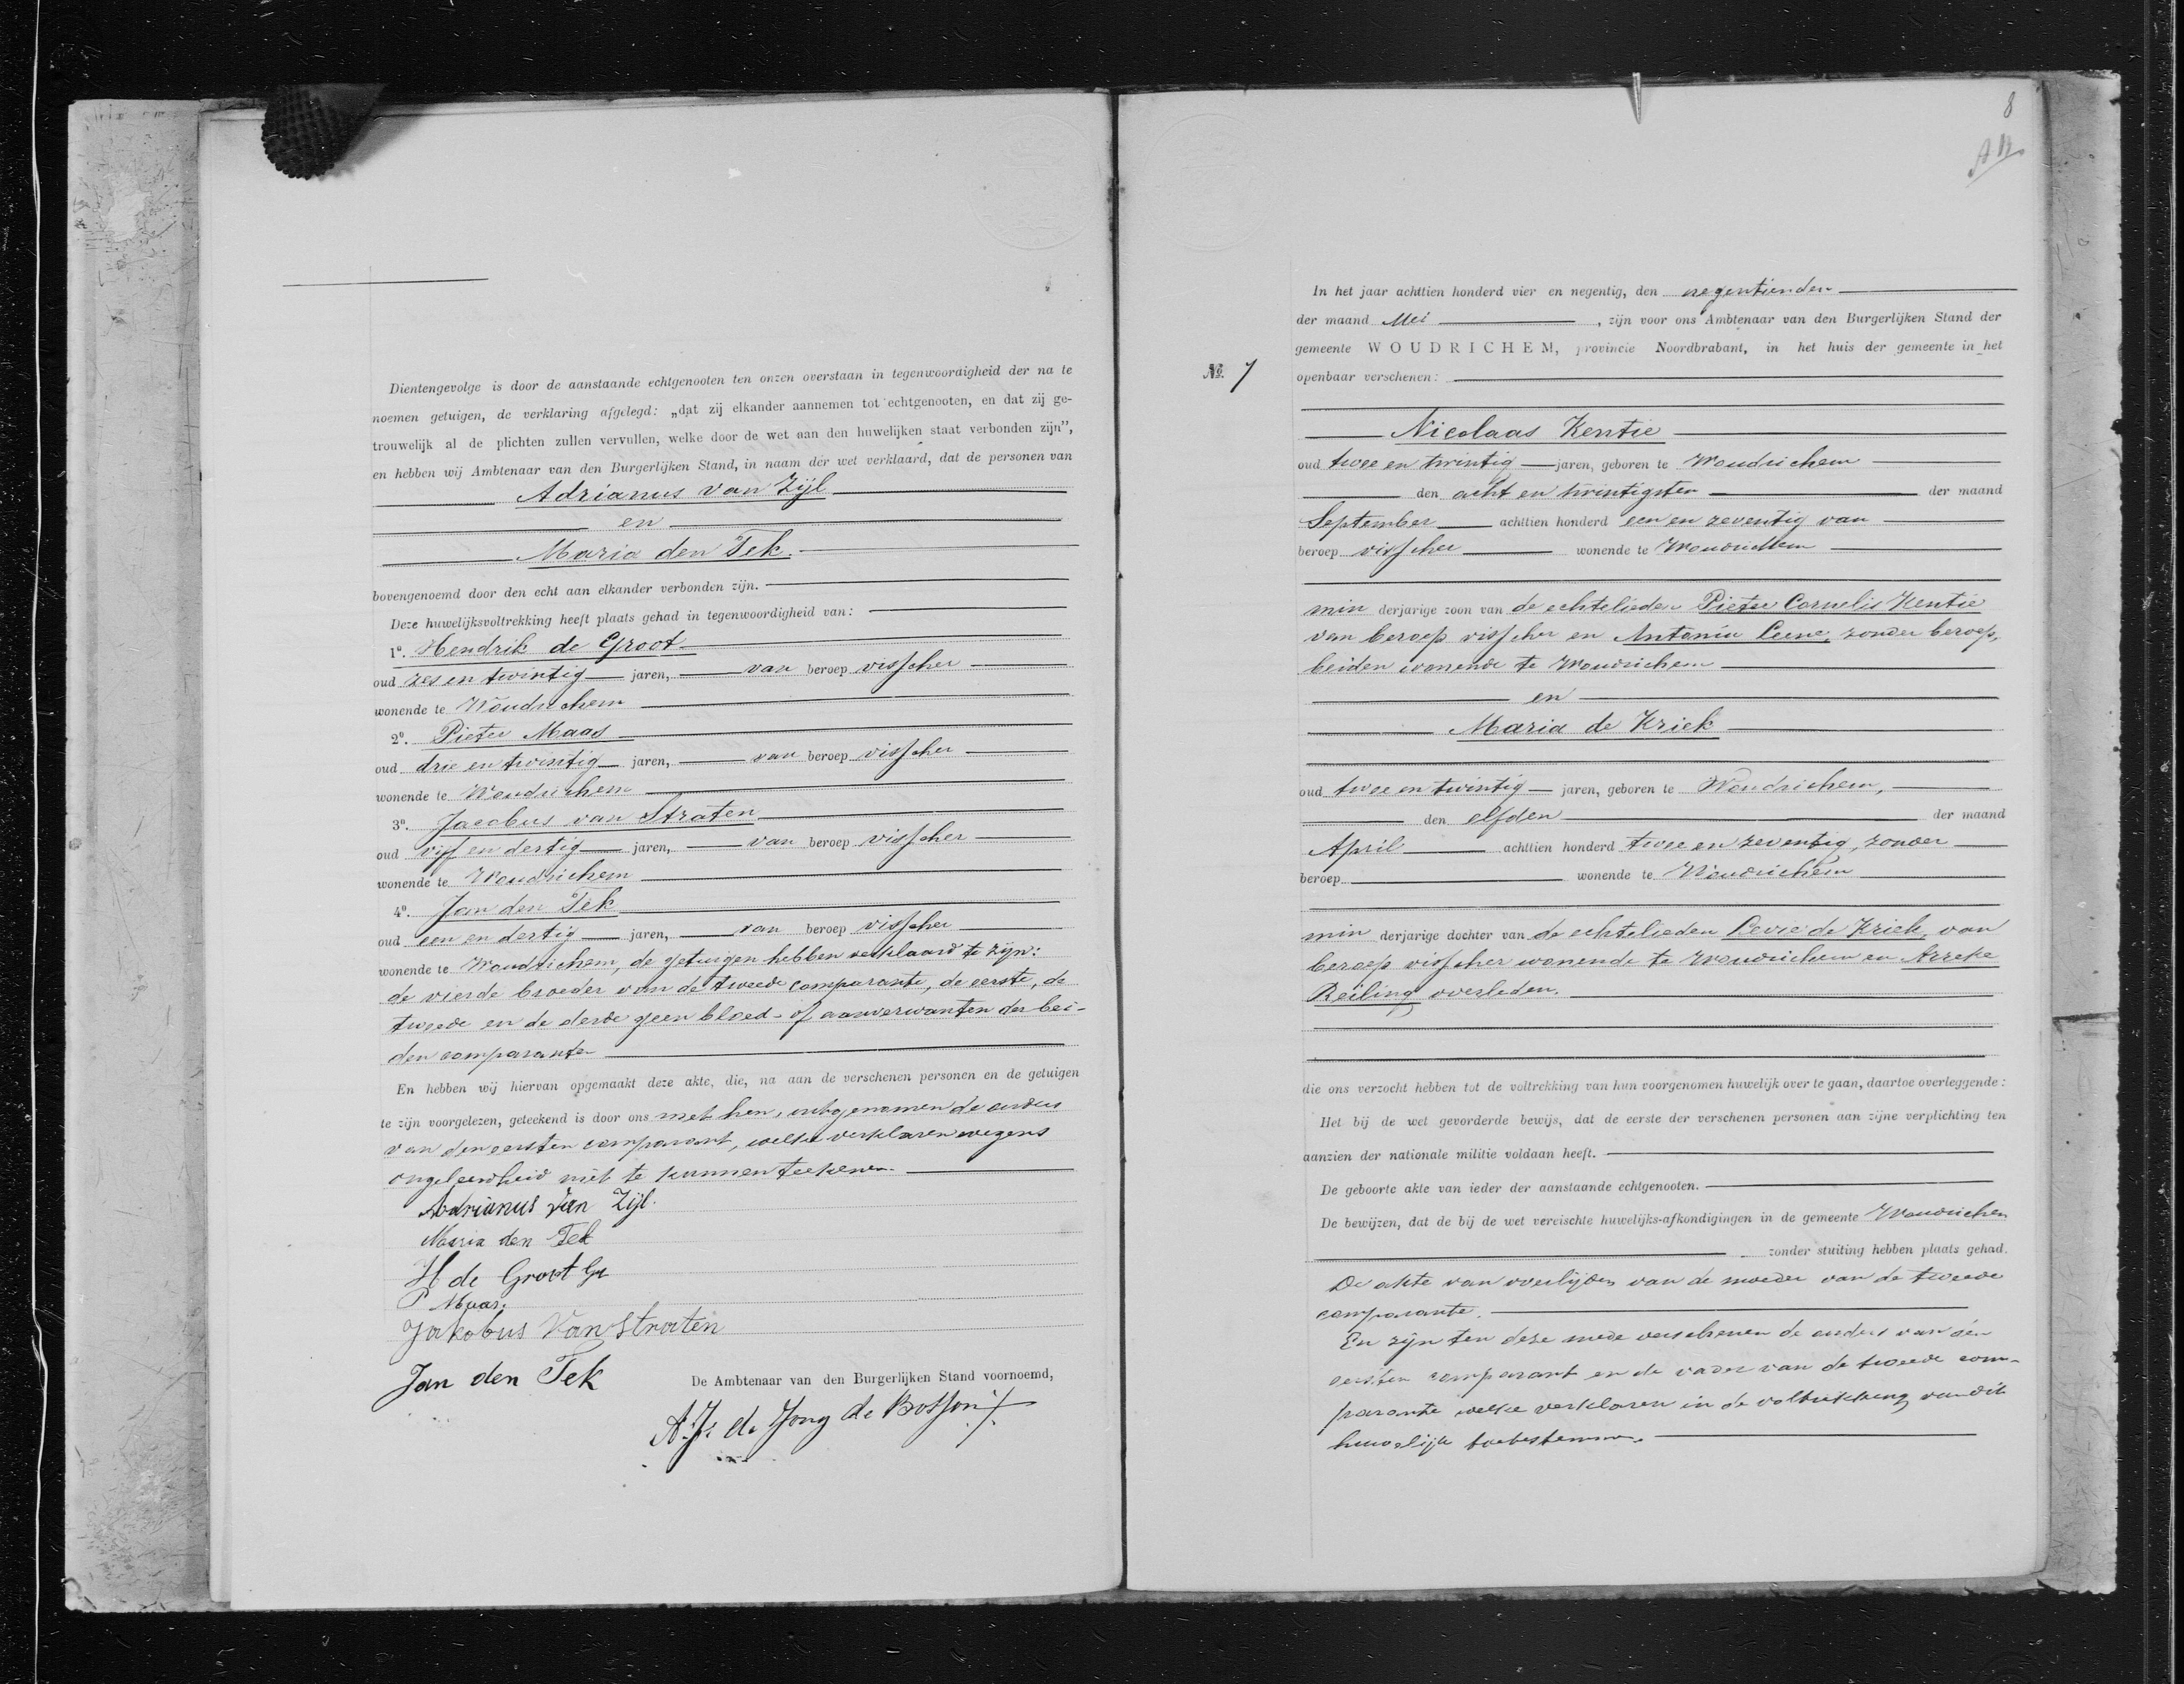 Dientengevolge is door de aanstaande echtgenooten ten onzen overstaan in tegenwoordigheid der na te
noemen getuigen, de verklaring afgelegd: „dat zij elkander aannemen tot echtgenooten, en dat zij ge-
trouwelijk al de plichten zullen vervullen, welke door de wet aan den huwelijken staat verbonden zijn”,
en hebben wij Ambtenaar van den Burgerlijken Stand, in naam der wet verklaard, dat de personen van
Adrianus van Zijl
en
Maria den Tek.
bovengenoemd door den echt aan elkander verbonden zijn.
Deze huwelijksvoltrekking heeft plaats gehad in tegenwoordigheid van:
1º. Hendrik de Groot
oud zes en twintig jaren, van beroep visscher
wonende te Woudrichem
2º. Pieter Maas
oud drie en twintig jaren, van beroep visscher
wonende te Woudrichem
3º. Jacobus van Straten
oud vijf en dertig jaren, van beroep visscher
wonende te Woudrichem
4º. Jan den Tek
oud een en dertig jaren, van beroep visscher
wonende te Woudrichem, de getuigen hebben verklaard te zijn:
de vierde broeder van de tweede comparante, de eerste, de
tweede en de derde geen bloed- of aanverwanten der bei-
den comparanten
En hebben wij hiervan opgemaakt deze akte, die, na aan de verschenen personen en de getuigen
te zijn voorgelezen, geteekend is door ons met hen, uitgenomen de ouders
van den eersten comparant, welke verklaren wegens
ongeleerdheid niet te kunnen teekenen.
Adrianus van Zijl.
Maria den Tek
H de Groot
P Maas.
Jakobus Van Straten
Jan den Tek
De Ambtenaar van den Burgerlijken Stand voornoemd,
de Jong de
8
In het jaar achttien honderd vier en negentig, den negentienden
der maand Mei, zijn voor ons Ambtenaar van den Burgerlijken Stand der
gemeente WOUDRICHEM, provincie Noordbrabant, in het huis der gemeente in het
Nº. 7 openbaar verschenen:
Nicolaas Kentie
oud twee en twintig jaren, geboren te Woudrichem
den acht en twintigsten der maand
September achttien honderd een en zeventig van
beroep visscher wonende te Woudrichem
min derjarige zoon van de echtelieden Pieter Cornelis Kentie
van beroep visscher en Antonia Leene, zonder beroep,
beiden wonende te Woudrichem
en
Maria de Kriek
oud twee en twintig jaren, geboren te Woudrichem,
den elfden der maand
April achttien honderd twee en zeventig, zonder
beroep wonende te Woudrichem
min derjarige dochter van de echtelieden Levie de Kriek, van
beroep visscher wonende te Woudrichem en
Reiling overleden.
die ons verzocht hebben tot de voltrekking van hun voorgenomen huwelijk over te gaan, daartoe overleggende:
Het bij de wet gevorderde bewijs, dat de eerste der verschenen personen aan zijne verplichting ten
aanzien der nationale militie voldaan heeft.
De geboorte akte van ieder der aanstaande echtgenooten.
De bewijzen, dat de bij de wet vereischte huwelijks-afkondigingen in de gemeente Woudrichem
zonder stuiting hebben plaats gehad.
De akte van overlijden van de moeder van de tweede
comparante.
En zijn ten deze mede verschenen de ouders van den
eersten comparant en de vader van de tweede com-
parante welke verklaren in de voltrekking van dit
huwelijk toetestemmen.